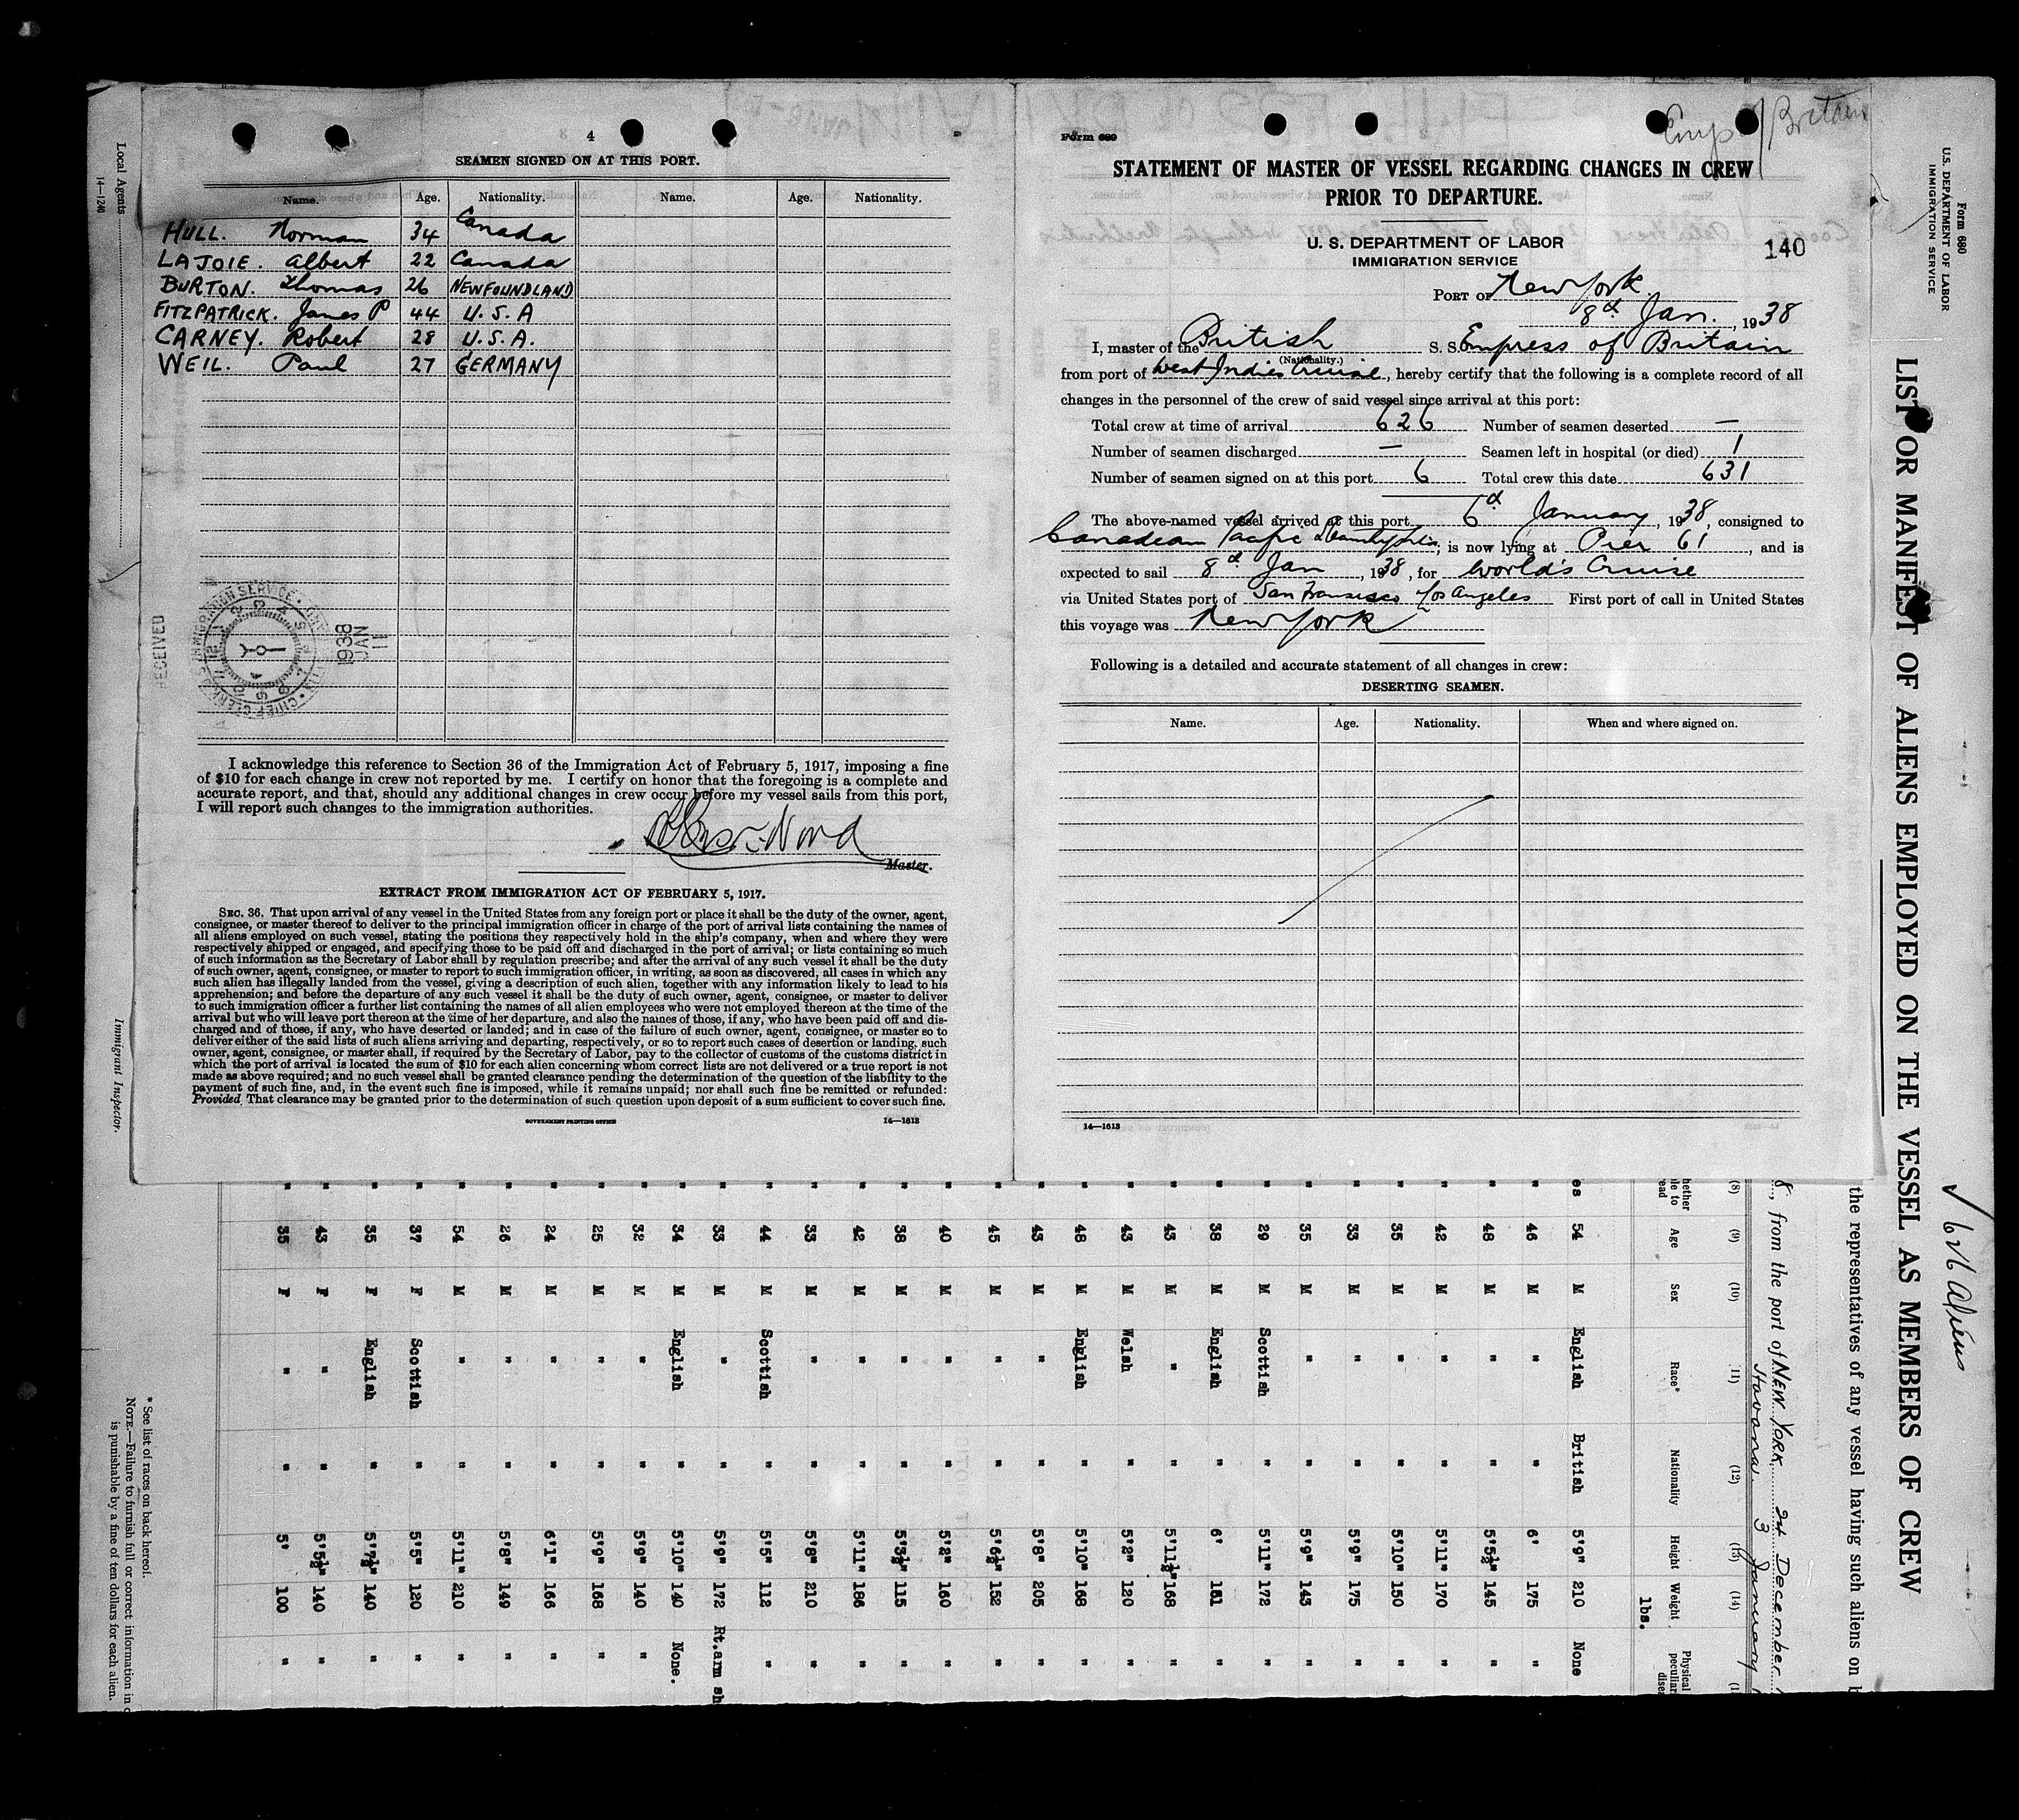 4
SEAMEN SIGNED ON AT THIS PORT.
Name. Age. Nationality. Name. Age. Nationality.
HULL. Norman 34 Canada
LAJOIE. Albert 22 Canada
BURTON. Thomas 26 NEWFOUNDLAND
FITZPATRICK. James P 44 U.S.A
CARNEY. Robert 28 U.S.A.
WEIL. Paul 27 GERMANY
RECEIVED
IMMIGRATION SERVICE
1938
JAN
11
I acknowledge this reference to Section 36 of the Immigration Act of February 5, 1917, imposing a fine
of $10 for each change in crew not reported by me. I certify on honor that the foregoing is a complete and
accurate report, and that, should any additional changes in crew occur before my vessel sails from this port,
I will report such changes to the immigration authorities.
Master.
EXTRACT FROM IMMIGRATION ACT OF FEBRUARY 5, 1917.
SEC. 36. That upon arrival of any vessel in the United States from any foreign port or place it shall be the duty of the owner, agent,
consignee, or master thereof to deliver to the principal immigration officer in charge of the port of arrival lists containing the names of
all aliens employed on such vessel, stating the positions they respectively hold in the ship's company, when and where they were
respectively shipped or engaged, and specifying those to be paid off and discharged in the port of arrival; or lists containing so much
of such information as the Secretary of Labor shall by regulation prescribe; and after the arrival of any such vessel it shall be the duty
of such owner, agent, consignee, or master to report to such immigration officer, in writing, as soon as discovered, all cases in which any
such alien has illegally landed from the vessel, giving a description of such alien, together with any information likely to lead to his
apprehension; and before the departure of any such vessel it shall be the duty of such owner, agent, consignee, or master to deliver
to such immigration officer a further list containing the names of all alien employees who were not employed thereon at the time of the
arrival but who will leave port thereon at the time of her departure, and also the names of those, if any, who have been paid off and dis-
charged and of those, if any, who have deserted or landed; and in case of the failure of such owner, agent, consignee, or master so to
deliver either of the said lists of such aliens arriving and departing, respectively, or so to report such cases of desertion or landing, such
owner, agent, consignee, or master shall, if required by the Secretary of Labor, pay to the collector of customs of the customs district in
which the port of arrival is located the sum of $10 for each alien concerning whom correct lists are not delivered or a true report is not
made as above required; and no such vessel shall be granted clearance pending the determination of the question of the liability to the
payment of such fine, and, in the event such fine is imposed, while it remains unpaid; nor shall such fine be remitted or refunded:
Provided, That clearance may be granted prior to the determination of such question upon deposit of a sum sufficient to cover such fine.
GOVERNMENT PRINTING OFFICE 14—1613
Form 680
Emp of Britain
STATEMENT OF MASTER OF VESSEL REGARDING CHANGES IN CREW
PRIOR TO DEPARTURE.
U. S. DEPARTMENT OF LABOR
IMMIGRATION SERVICE
140
PORT OF New York
8th Jan., 1938
I, master of the British S. S. Empress of Britain
(Nationality.)
from port of West Indies Cruise, hereby certify that the following is a complete record of all
changes in the personnel of the crew of said vessel since arrival at this port:
Total crew at time of arrival 626 Number of seamen deserted —
Number of seamen discharged — Seamen left in hospital (or died) 1
Number of seamen signed on at this port 6 Total crew this date 631
The above-named vessel arrived at this port 6th January, 1938, consigned to
Canadian Pacific Steamships; is now lying at Pier 61, and is
expected to sail 8th Jan, 1938, for World's Cruise
via United States port of San Fransisco Los Angeles First port of call in United States
this voyage was New York
Following is a detailed and accurate statement of all changes in crew:
DESERTING SEAMEN.
Name. Age. Nationality. When and where signed on.
14—1613
Form 680
U. S. DEPARTMENT OF LABOR
IMMIGRATION SERVICE
LIST OR MANIFEST OF ALIENS EMPLOYED ON THE VESSEL AS MEMBERS OF CREW
✓ 626 Aliens
the representatives of any vessel having such aliens on b
8, from the port of NEW YORK 24 December
Havana 3 January
(8) (9) (10) (11) (12) (13) (14)
hether le to ead Age Sex Race* Nationality Height Weight Physical peculiar disea
lbs.
es 54 M English British 5'9" 210 None
" 46 M " " 6' 175 "
" 48 M " " 5'5½" 145 "
" 42 M " " 5'11" 170 "
" 35 M " " 5'10" 150 "
" 33 M " " 5'9" 175 "
" 35 M " " 5'9" 143 "
" 29 M Scottish " 5'11" 172 "
" 38 M English " 6' 161 "
" 43 M " " 5'11½" 168 "
" 43 M Welsh " 5'2" 120 "
" 48 M English " 5'10" 168 "
" 43 M " " 5'8" 205 "
" 45 M " " 5'6½" 152 "
" 40 M " " 5'2" 160 "
" 38 M " " 5'3½" 115 "
" 42 M " " 5'11" 186 "
" 33 M " " 5'8" 210 "
" 44 M Scottish " 5'5" 112 "
" 33 M " " 5'9" 172 Rt.arm sh
" 34 M English " 5'10" 140 None.
" 32 M " " 5'9" 140 "
" 25 M " " 5'9" 168 "
" 24 M " " 6'1" 166 "
" 26 M " " 5'8" 149 "
" 54 M " " 5'11" 210 "
" 37 F Scottish " 5'5" 120 "
" 35 F English " 5'7½" 140 "
" 43 F " " 5'5½" 140 "
" 35 F " " 5' 100 "
* See list of races on back hereof.
NOTE.—Failure to furnish full or correct information in c
is punishable by a fine of ten dollars for each alien.
Local Agents
14—1240
Immigrant Inspector.